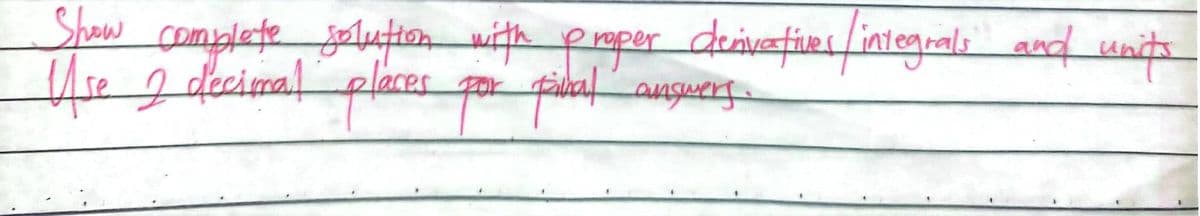 Show complete solution with proper derivatives/integrals and units
Use 2 decimal places for final answers.